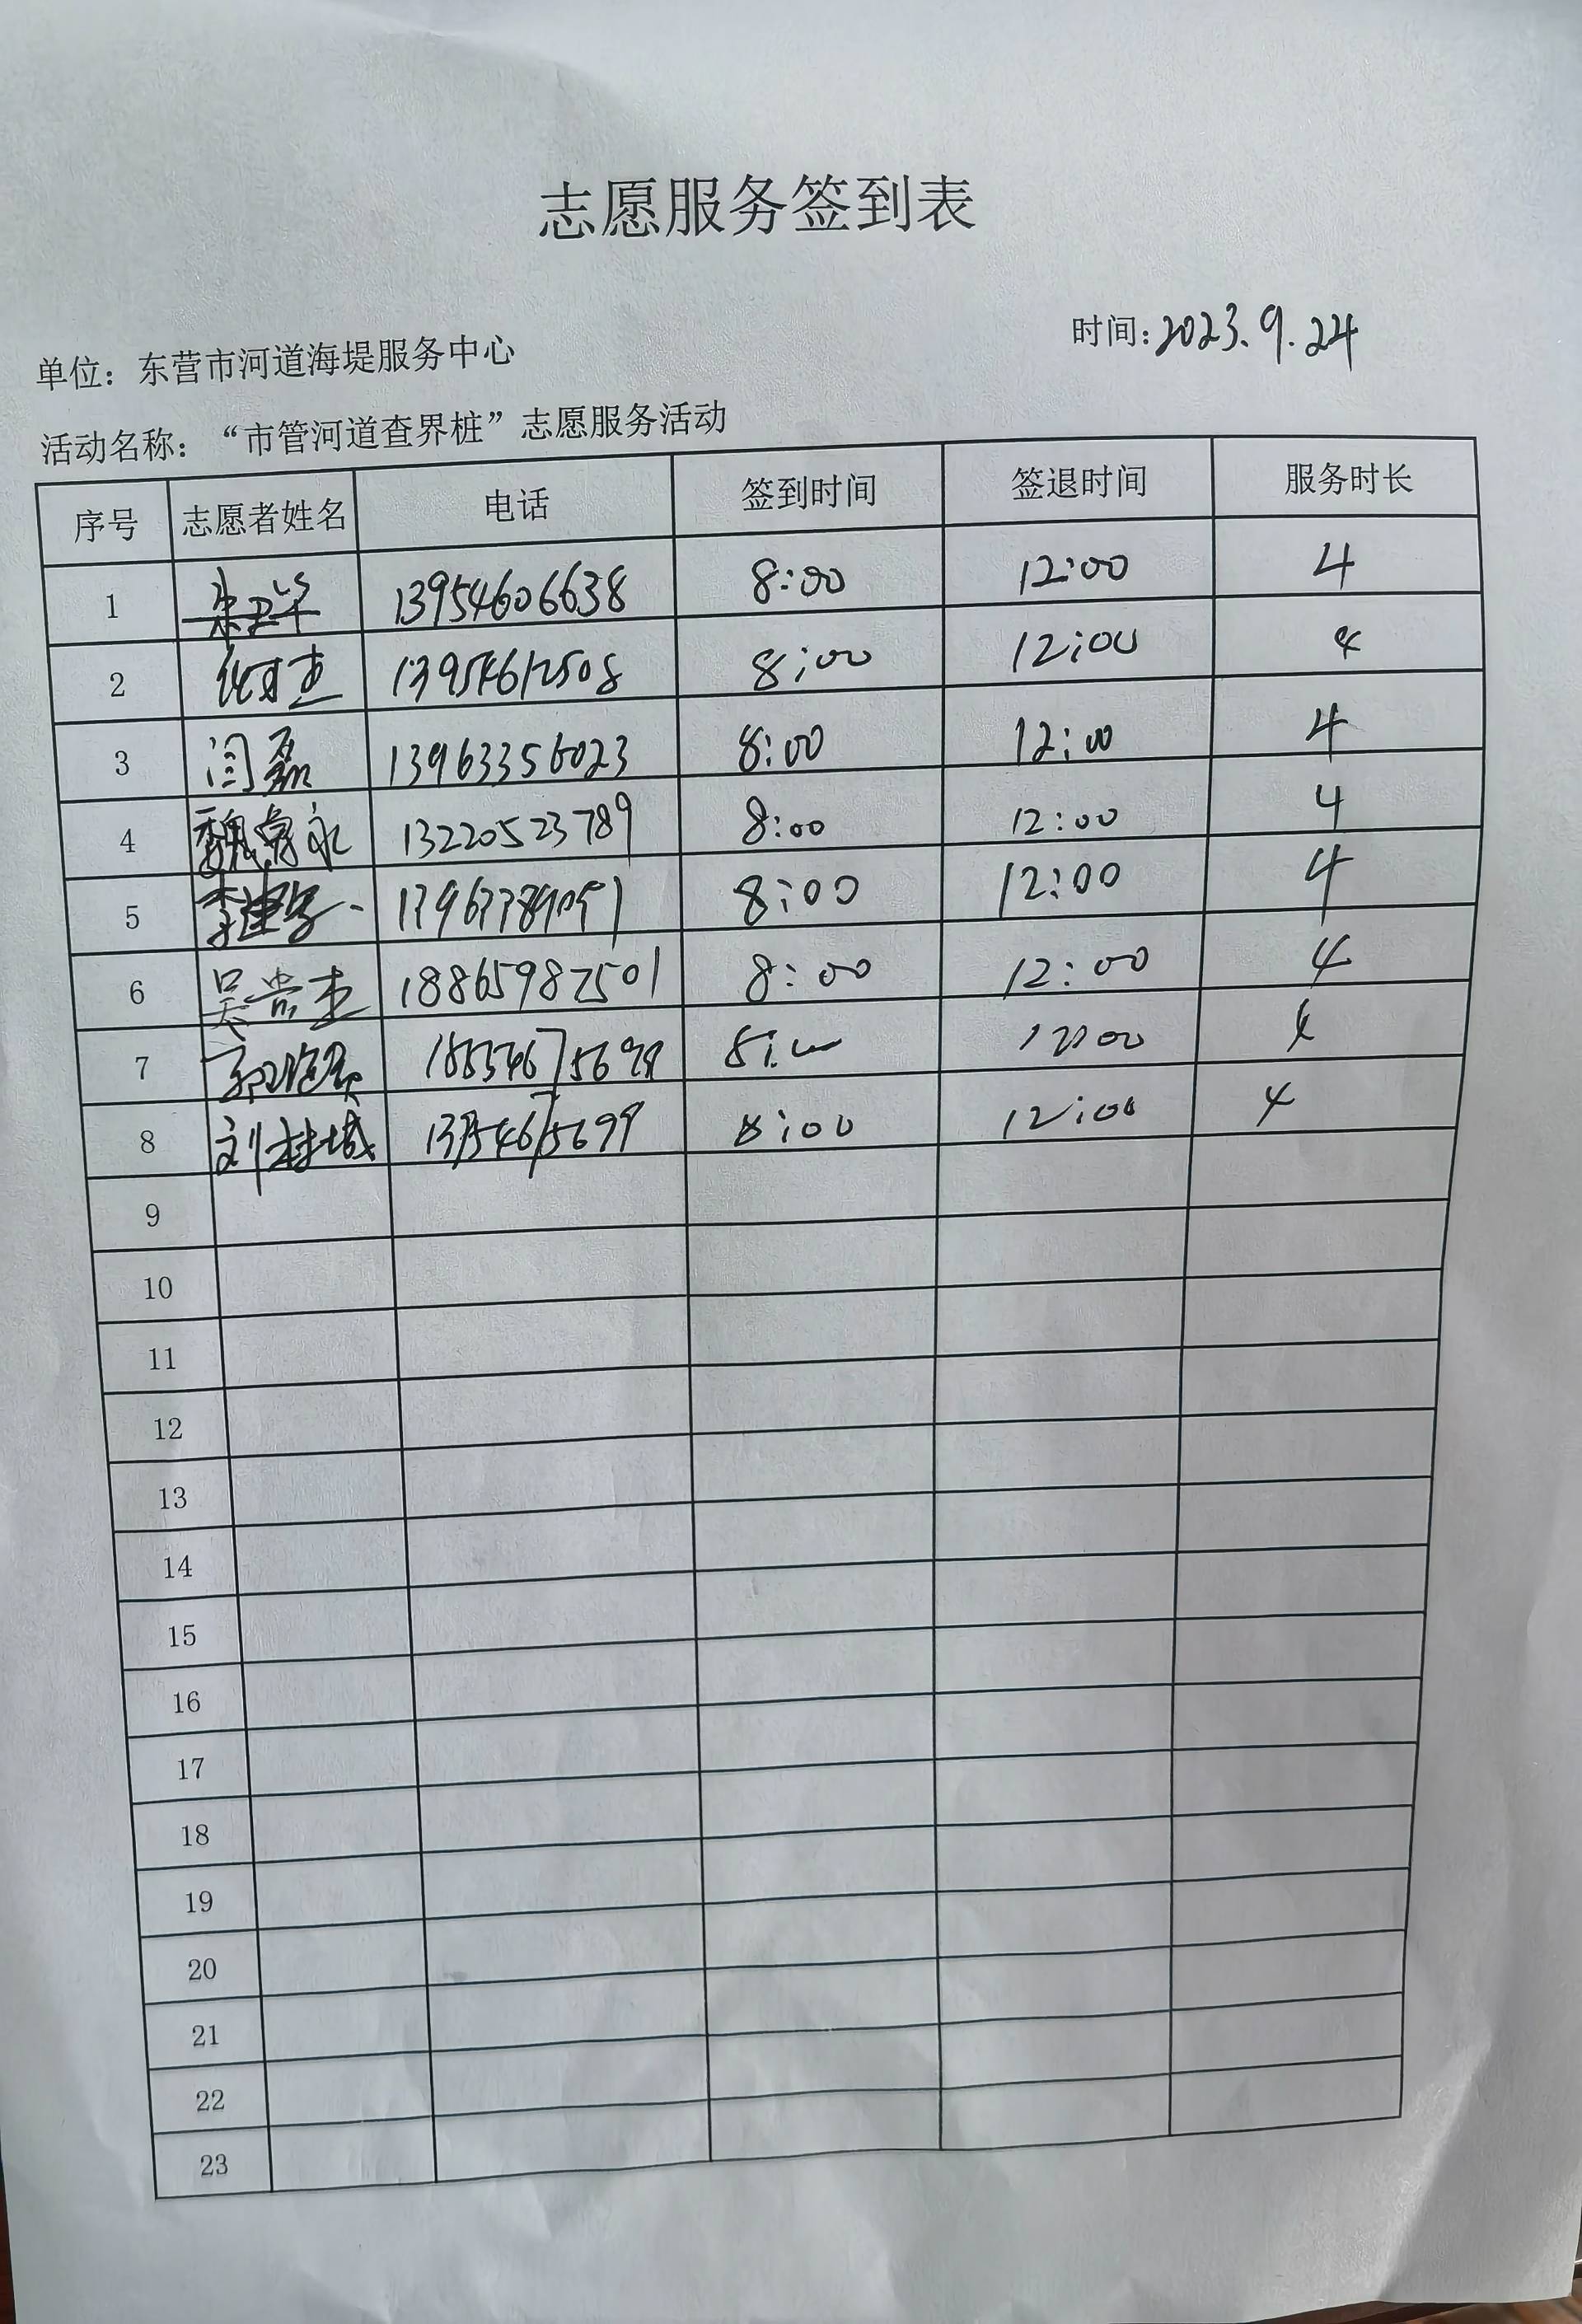 志愿服务签到表
时间:2023.9.24
单位：东营市河道海堤服务中心
活动名称：“市管河道查界桩”志愿服务活动
序号 志愿者姓名 电话 签到时间 签退时间 服务时长
1 13954606638 8:00 12:00 4
2 13954612508 8:00 12:00 4
3 闫磊 13963356023 8:00 12:00 4
4 魏 永 13220523789 8:00 12:00 4
5 李建 8:00 12:00 4
6 吴 杰 18865987501 8:00 12:00 4
7 8:00 12:00 4
8 刘 城 8:00 12:00 4
9
10
11
12
13
14
15
16
17
18
19
20
21
22
23